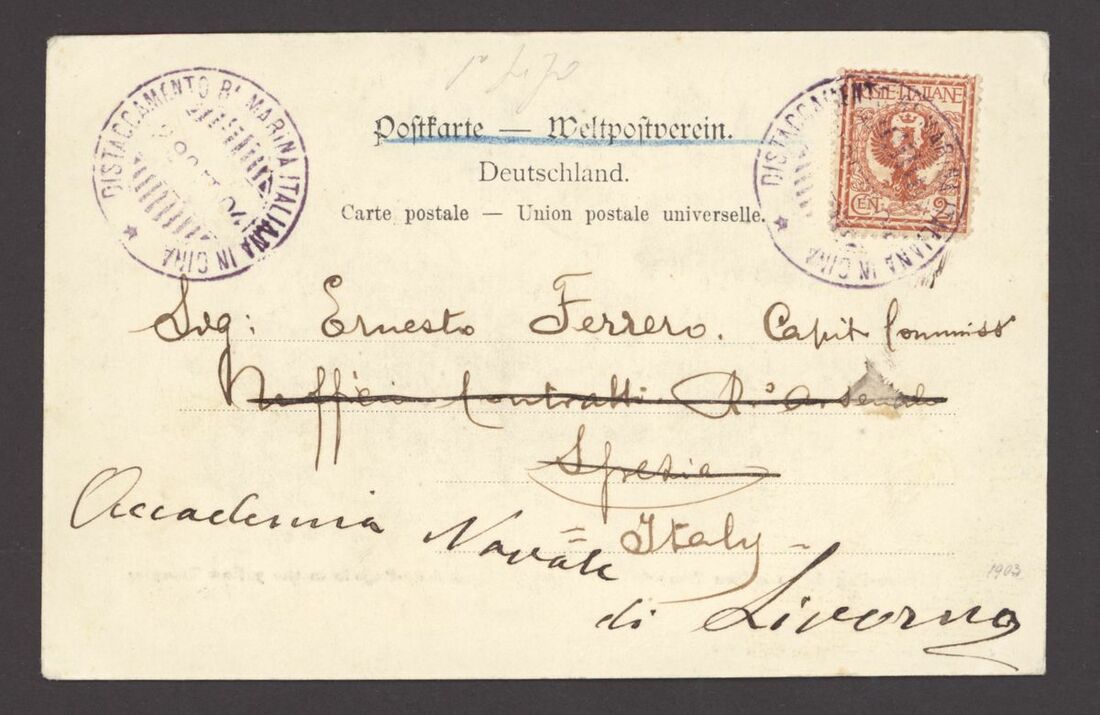 DISTACCAMENTO Rª MARINA ITALIANA IN CINA
Postkarte — Weltpostverein.
Deutschland.
Carte postale — Union postale universelle.
DISTACCAMENTO Rª MARINA ITALIANA IN CINA
POSTE ITALIANE
CEN. 2
Sig: Ernesto Ferrero. Capit Commiss
Uffici Contratti R. Arsenale
Spezia
Italy
Accademia Navale
di Livorno
1903